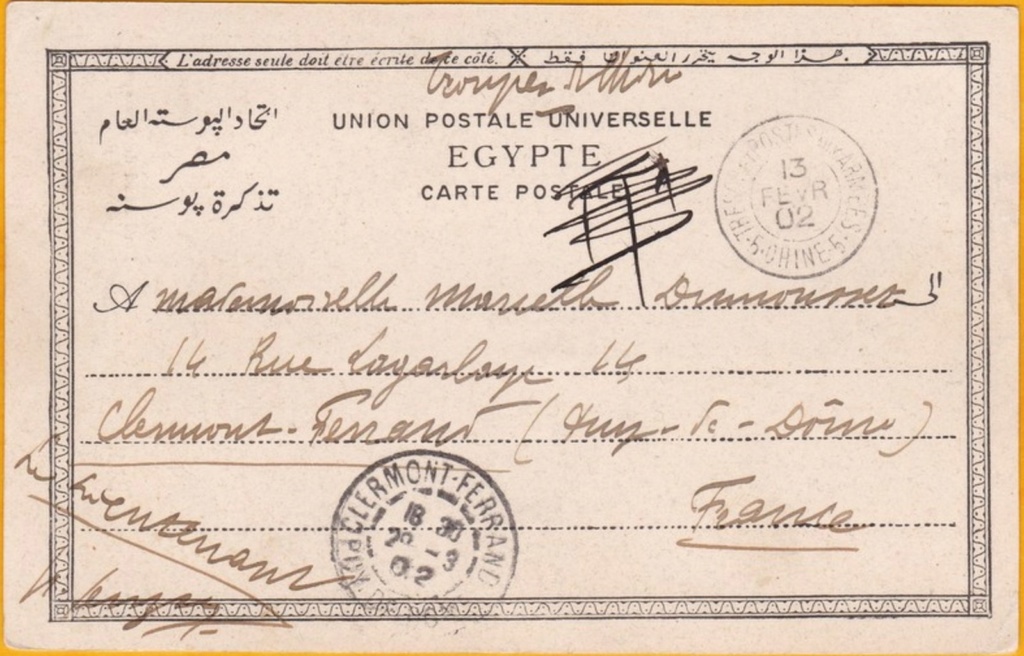 L'adresse seule doit être écrite de ce côté. هذا الوجه يتحرر العنوان فقط.
Troupes
UNION POSTALE UNIVERSELLE
اتحاد البوسته العام
EGYPTE
مصر
CARTE POSTALE
تذكرة بوسته
T
TRESOR ET POSTES AUX ARMEES
13
FEVR
02
5 CHINE 5
A Mademoiselle Marcelle Dumousset الى
14 Rue Lagarlaye 14
Clermont-Ferrand (Puy-de-Dôme)
France
CLERMONT-FERRAND
18 35
26 - 3
02
PUY-DE-DOME
Lieutenant